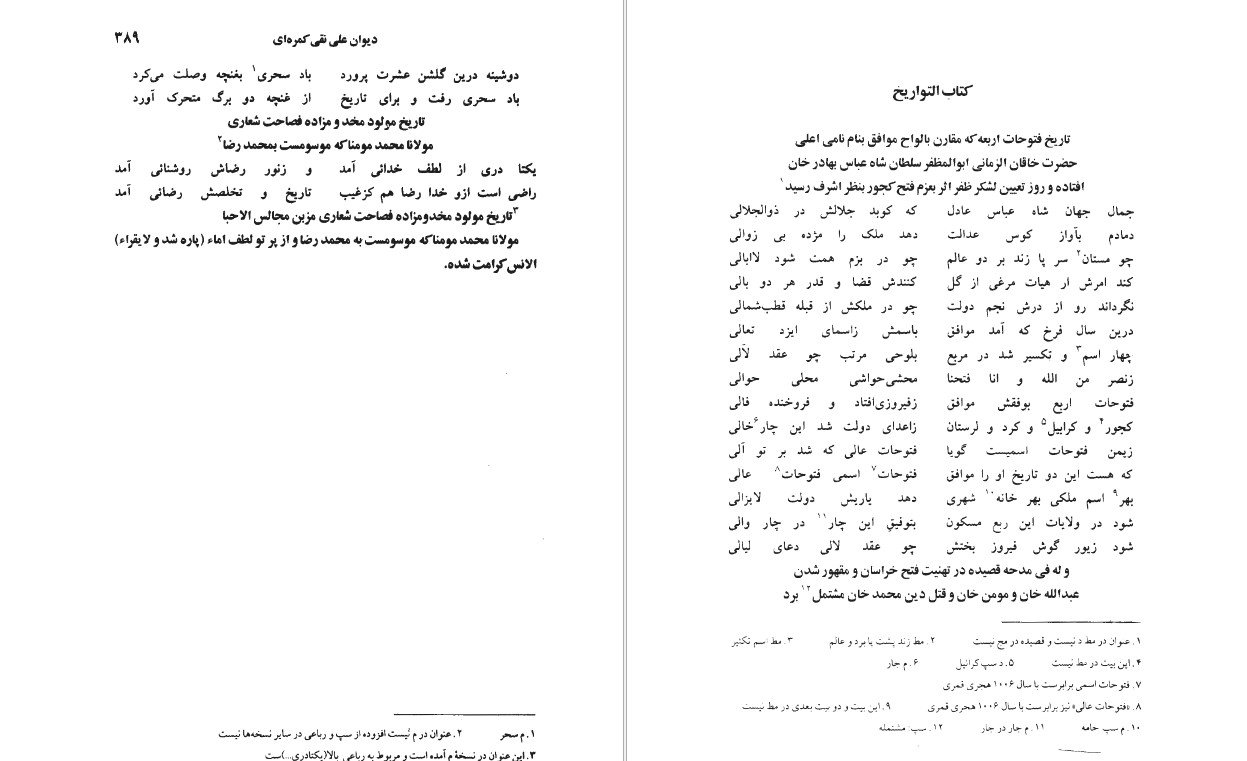 کتاب التواریخ
تاریخ فتوحات اربعه که مقارن بالواح موافق بنام نامی اعلی
حضرت خاقان الزمانی ابوالمظفر سلطان شاه عباس بهادر خان
افتاده و روز تعیین لشکر ظفر اثر بعزم فتح کجور بنظر اشرف رسید۱
جمال جهان شاه عباس عادل که کوبد جلالش در ذوالجلالی
دمادم بآواز کوس عدالت دهد ملک را مژده بی زوالی
چو مستان۲ سر پا زند بر دو عالم چو در بزم همت شود لاابالی
کند امرش ار هیات مرغی از گل کنندش قضا و قدر هر دو بالی
نگرداند رو از درش نجم دولت چو در ملکش از قبله قطب‌شمالی
درین سال فرخ که آمد موافق باسمش زاسمای ایزد تعالی
چهار اسم۳ و تکسیر شد در مربع بلوحی مرتب چو عقد لآلی
زنصر من الله و انا فتحنا محشی‌حواشی محلی حوالی
فتوحات اربع بوفقش موافق زفیروزی‌افتاد و فروخنده فالی
کجور۴ و کرابیل۵ و کرد و لرستان زاعدای دولت شد این چار۶خالی
زیمن فتوحات اسمیست گویا فتوحات عالی که شد بر تو آلی
که هست این دو تاریخ او را موافق فتوحات۷ اسمی فتوحات۸ عالی
بهر۹ اسم ملکی بهر خانه۱۰ شهری دهد یاریش دولت لایزالی
شود در ولایات این ربع مسکون بتوفیق این چار۱۱ در چار والی
شود زیور گوش فیروز بختش چو عقد لالی دعای لیالی
و له فی مدحه قصیده در تهنیت فتح خراسان و مقهور شدن
عبدالله خان و مومن خان و قتل دین محمد خان مشتمل۱۲ برد
۱. عنوان در مط د نیست و قصیده در مج نیست ۲. مط زند پشت پا برد و عالم ۳. مط اسم تکثیر
۴. این بیت در مط نیست ۵. د سپ کرانیل ۶. م جار
۷. فتوحات اسمی برابرست با سال ۱۰۰۶ هجری قمری
۸. «فتوحات عالی» نیز برابرست با سال ۱۰۰۶ هجری قمری ۹. این بیت و دو بیت بعدی در مط نیست
۱۰. م سپ حامه ۱۱. م جار در جار ۱۲. سپ: مشتمله
دیوان علی نقی کمره‌ای ۳۸۹
دوشینه درین گلشن عشرت پرورد باد سحری۱ بغنچه وصلت می‌کرد
باد سحری رفت و برای تاریخ از غنچه دو برگ متحرک آورد
تاریخ مولود مخد و مزاده فصاحت شعاری
مولانا محمد مومنا که موسومست بمحمد رضا۲
یکتا دری از لطف خدائی آمد و زنور رضاش روشنائی آمد
راضی است ازو خدا رضا هم کزغیب تاریخ و تخلصش رضائی آمد
۳تاریخ مولود مخدومزاده فصاحت شعاری مزین مجالس الاحبا
مولانا محمد مومنا که موسومست به محمد رضا و از پر تو لطف اماء (پاره شد و لایقراء)
الانس کرامت شده.
۱. م سحر ۲. عنوان در م نیست افزوده از سپ و رباعی در سایر نسخه‌ها نیست
۳. این عنوان در نسخهٔ م آمده است و مربوط به رباعی بالا(یکتادری...)ست